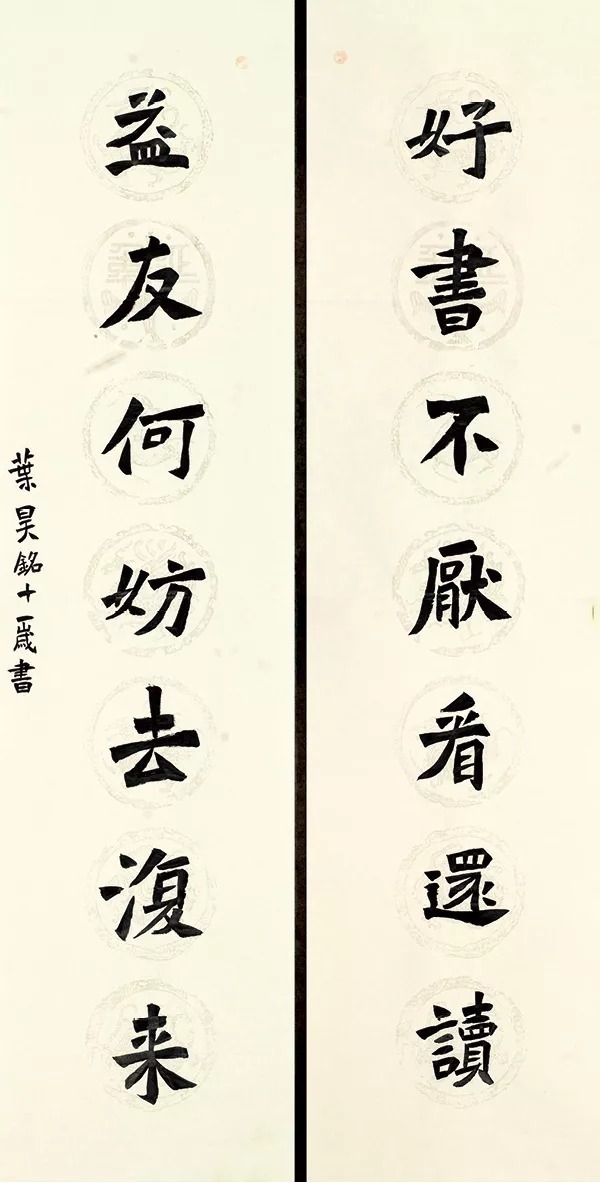 好書不厭看還讀
益友何妨去復来
葉昊銘十一歲書